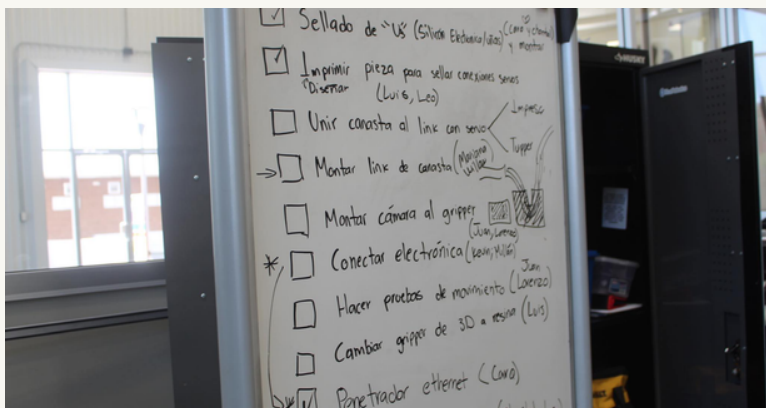 Sellado de "Us" (Silicón Electronica/uñas) (Caro y
y montar
Imprimir pieza para sellar conexiones servos
Diseñar
(Luis, Leo)
Unir canasta al link con servo
Impreso
Tupper
Montar link de canasta (Mariana
Montar cámara al gripper
(Juan, Lorenzo)
Conectar electrónica (Kevin, Millán)
Hacer pruebas de movimiento (Juan
Lorenzo)
Cambiar gripper de 3D a resina (Luis)
Penetrador ethernet (Caro)
HUSKY